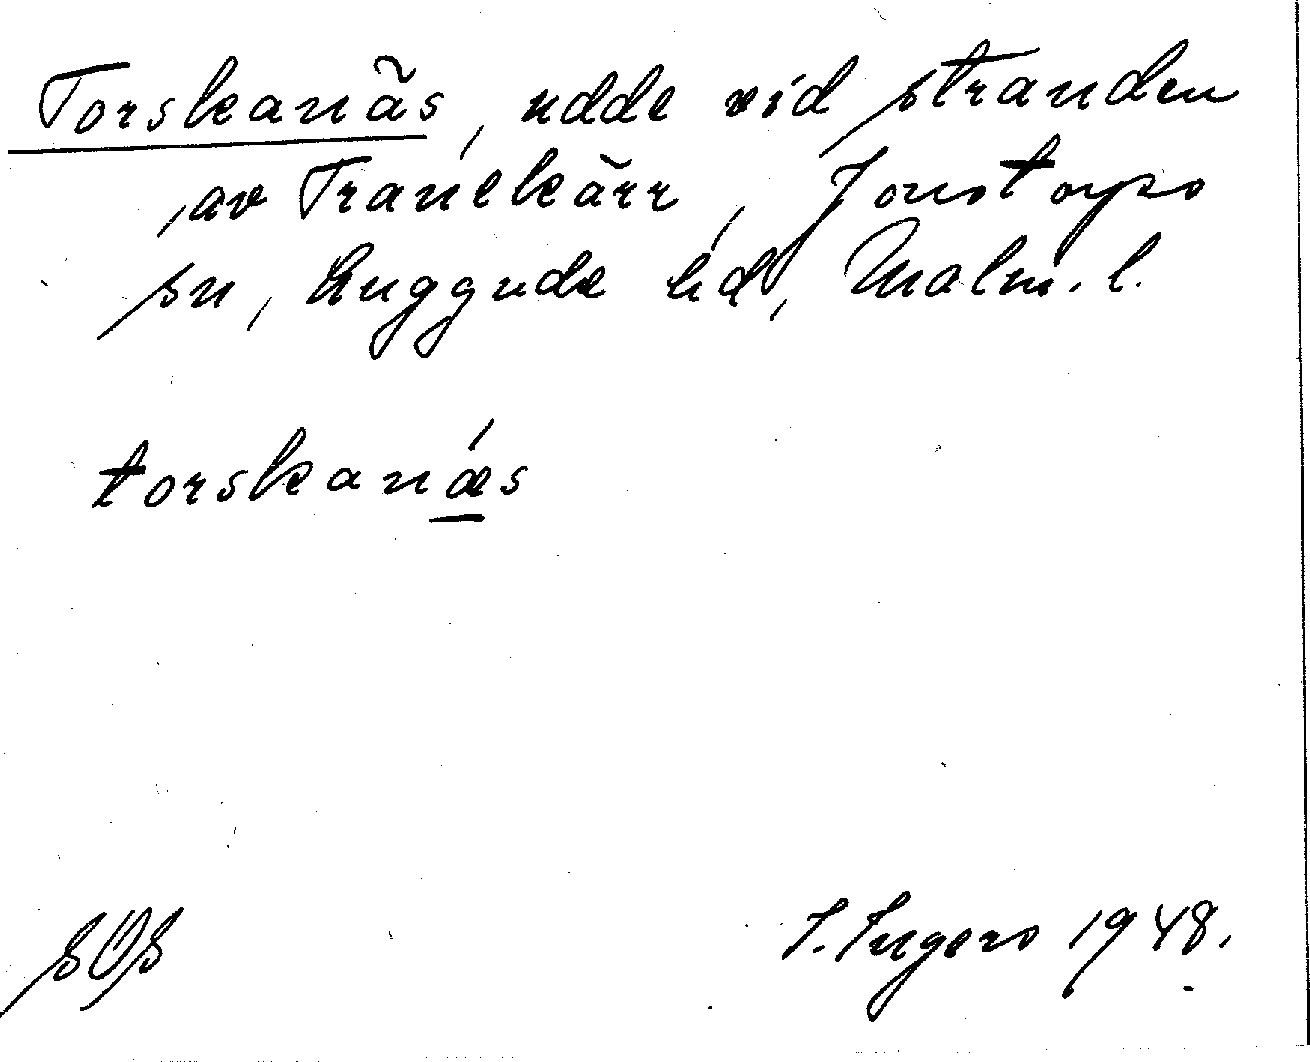 Torskanäs, udde vid stranden
av Tranekärr, Jonstorps
sn, Luggude hd, Malm. l.
torskanǽs
SOS
I. Ingers 1948.